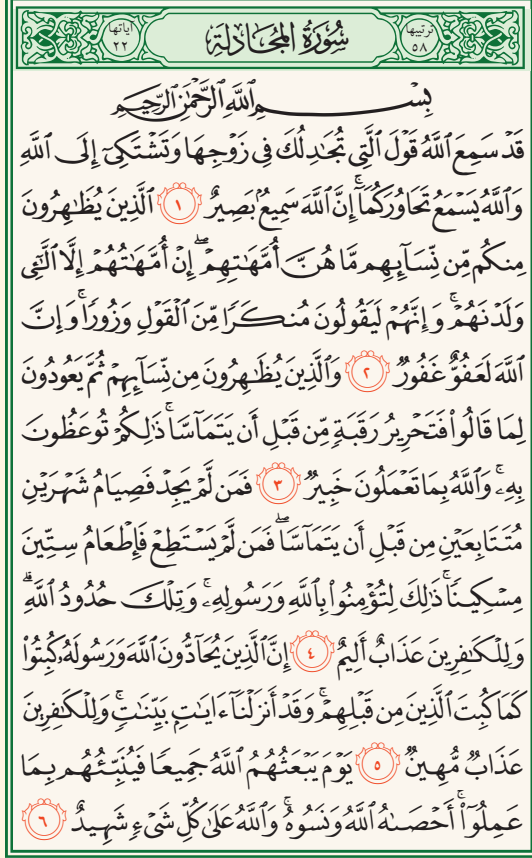 آياتها ٢٢ سُورَةُ المُجَادلَةِ ترتيبها ٥٨
بِسْمِ ٱللَّهِ ٱلرَّحْمَٰنِ ٱلرَّحِيمِ
قَدْ سَمِعَ ٱللَّهُ قَوْلَ ٱلَّتِي تُجَٰدِلُكَ فِي زَوْجِهَا وَتَشْتَكِيٓ إِلَى ٱللَّهِ
وَٱللَّهُ يَسْمَعُ تَحَاوُرَكُمَآۚ إِنَّ ٱللَّهَ سَمِيعُۢ بَصِيرٌ ١ ٱلَّذِينَ يُظَٰهِرُونَ
مِنكُم مِّن نِّسَآئِهِم مَّا هُنَّ أُمَّهَٰتِهِمْۖ إِنْ أُمَّهَٰتُهُمْ إِلَّا ٱلَّٰٓـِٔي
وَلَدْنَهُمْۚ وَإِنَّهُمْ لَيَقُولُونَ مُنكَرًا مِّنَ ٱلْقَوْلِ وَزُورًاۚ وَإِنَّ
ٱللَّهَ لَعَفُوٌّ غَفُورٌ ٢ وَٱلَّذِينَ يُظَٰهِرُونَ مِن نِّسَآئِهِمْ ثُمَّ يَعُودُونَ
لِمَا قَالُوا۟ فَتَحْرِيرُ رَقَبَةٍ مِّن قَبْلِ أَن يَتَمَآسَّاۚ ذَٰلِكُمْ تُوعَظُونَ
بِهِۦۚ وَٱللَّهُ بِمَا تَعْمَلُونَ خَبِيرٌ ٣ فَمَن لَّمْ يَجِدْ فَصِيَامُ شَهْرَيْنِ
مُتَتَابِعَيْنِ مِن قَبْلِ أَن يَتَمَآسَّاۖ فَمَن لَّمْ يَسْتَطِعْ فَإِطْعَامُ سِتِّينَ
مِسْكِينًاۚ ذَٰلِكَ لِتُؤْمِنُوا۟ بِٱللَّهِ وَرَسُولِهِۦۚ وَتِلْكَ حُدُودُ ٱللَّهِۗ
وَلِلْكَٰفِرِينَ عَذَابٌ أَلِيمٌ ٤ إِنَّ ٱلَّذِينَ يُحَآدُّونَ ٱللَّهَ وَرَسُولَهُۥ كُبِتُوا۟
كَمَا كُبِتَ ٱلَّذِينَ مِن قَبْلِهِمْۚ وَقَدْ أَنزَلْنَآ ءَايَٰتٍۭ بَيِّنَٰتٍۚ وَلِلْكَٰفِرِينَ
عَذَابٌ مُّهِينٌ ٥ يَوْمَ يَبْعَثُهُمُ ٱللَّهُ جَمِيعًا فَيُنَبِّئُهُم بِمَا
عَمِلُوٓا۟ۚ أَحْصَىٰهُ ٱللَّهُ وَنَسُوهُۚ وَٱللَّهُ عَلَىٰ كُلِّ شَيْءٍ شَهِيدٌ ٦